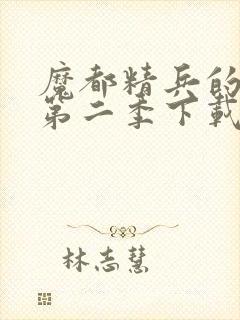 魔都精兵的
第二季下載
林志慧